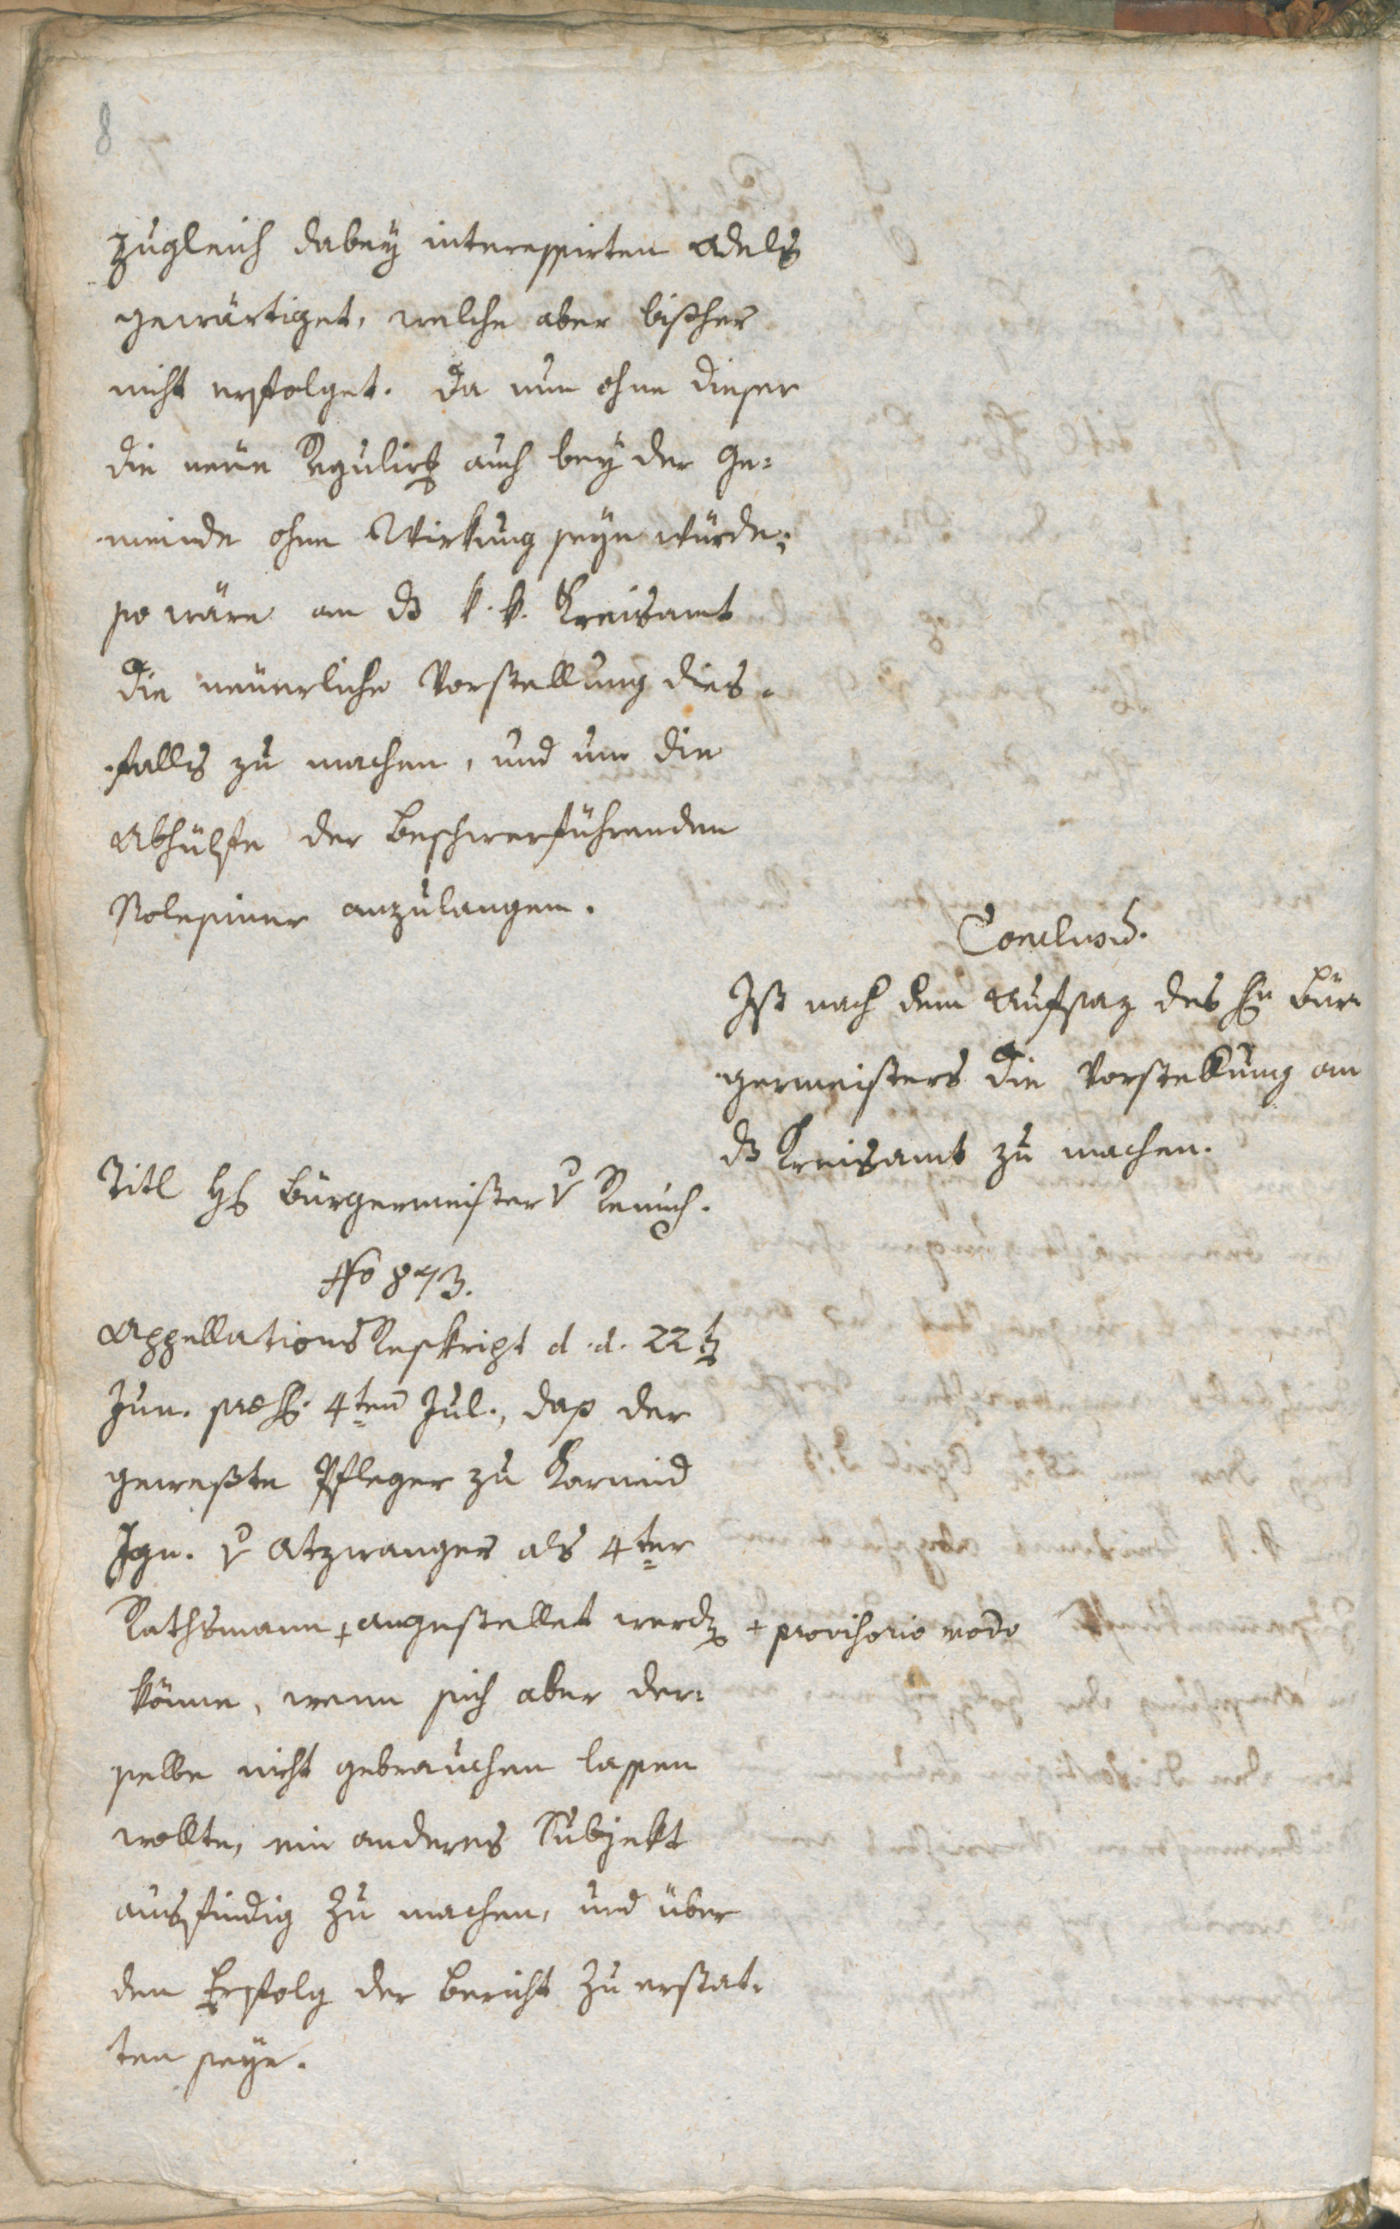 8
zugleich dabey interessirten Adels
gewärtiget, welche aber bishher
nicht erfolget. Da nun ohne dieser
die neüe Regulirg auch bey der Ge¬
meinde ohne Wirkung seyn würde;
so wäre an dz k. k. Kreisamt
die neüerliche Vorstellung dies¬
falls zu machen, und um die
Abhülfe der beschwerführenden
anzulangen.
Conclusum.
Ist nach dem Aufsaz des Hn Bür¬
germeisters die Vorstellung an
dz Kreisamt zu machen.
Titl Hr Bürgermeister v Remich.
No 873.
Appellations Reskript d. d. 22t
Jun. præs. 4ten Jul., daß der
geweßte Pfleger zu Karneid
Ign. v Atzwanger als 4ter
Rathsmann + angestellet werdn + provisorio modo
könne, wenn sich aber der¬
selbe nicht gebrauchen lassen
wollte, ein anderes Subjekt
ausfindig zu machen, und über
den Erfolg der Bericht zu erstat¬
ten seye.